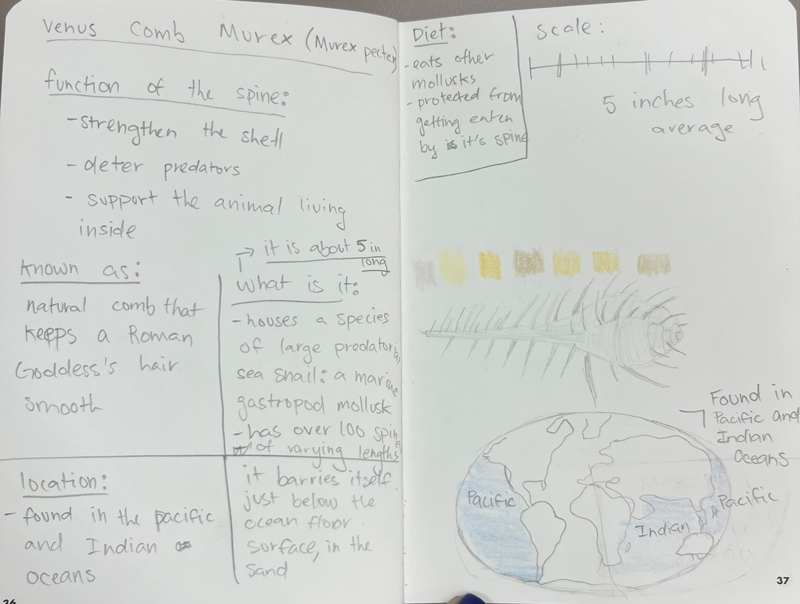 Venus Comb Murex (Murex pecten)
function of the spine:
- strengthen the shell
- deter predators
- support the animal living
inside
known as:
natural comb that
keeps a Roman
Goddess's hair
smooth
it is about 5 in
long
what is it:
- houses a species
of large predatory
sea snail: a marine
gastropod mollusk
- has over 100 spines
of varying lengths
it barries itself
just below the
ocean floor
surface, in the
sand
location:
- found in the pacific
and Indian
oceans
36
Diet:
- eats other
mollusks
- protected from
getting eaten
by it's spine
Scale:
5 inches long
average
Found in
Pacific and
Indian
Oceans
Pacific
Indian
Pacific
37